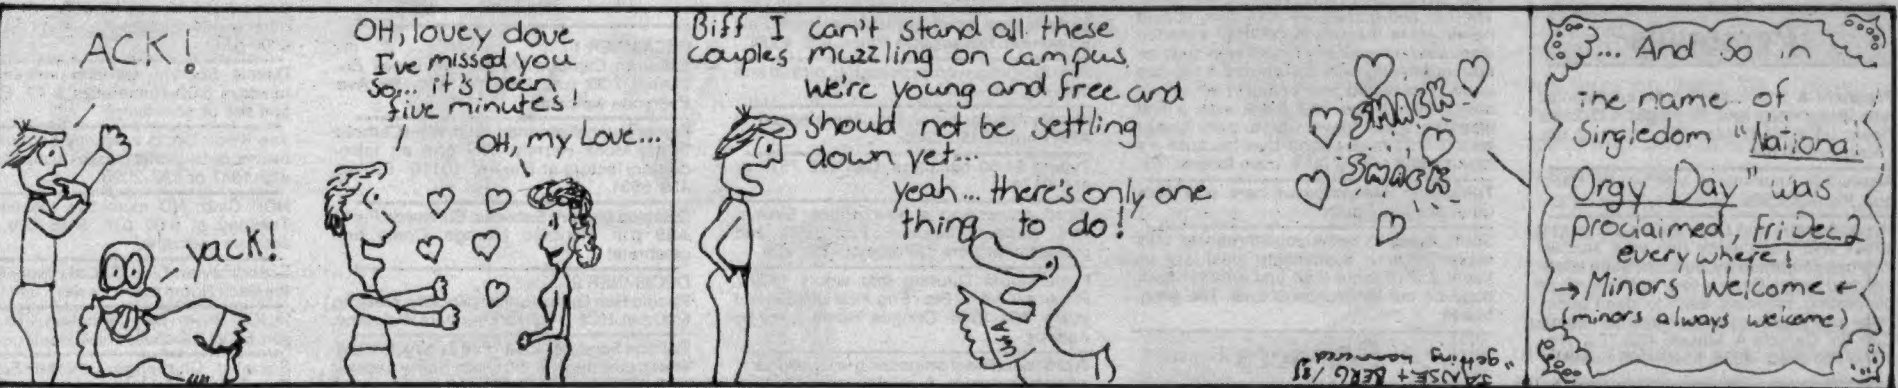 ACK!
yack!
OH, lovey dove
I've missed you
so... it's been
five minutes!
OH, my Love...
Biff I can't stand all these
couples muzzling on campus
we're young and free and
should not be settling
down yet...
yeah... there's only one
thing to do!
SMACK
SMACK
"getting hammered"
... And so in
the name of
Singledom "National
Orgy Day" was
proclaimed, Fri Dec 2
everywhere!
→ Minors Welcome ←
(minors always welcome)